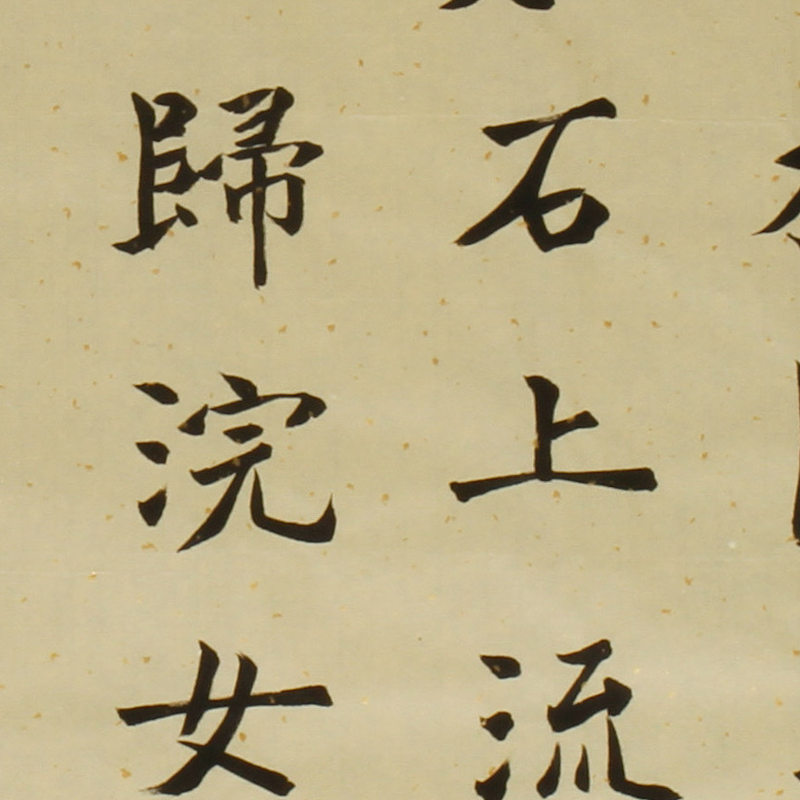 石上流
歸浣女